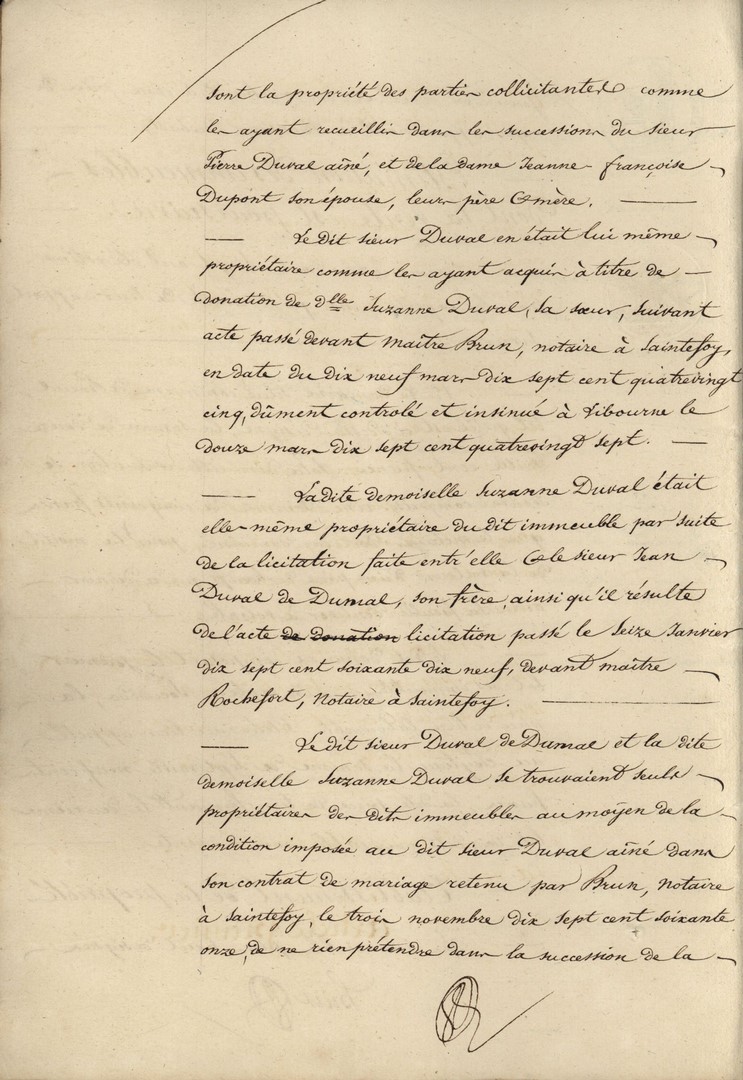 sont la propriété des parties collicitantes comme
les ayant recueillis dans les successions du sieur
Pierre Duval aîné, et de la dame Jeanne françoise
Dupont son épouse, leurs père & mère.
Le dit sieur Duval en était lui même
propriétaire comme les ayant acquis à titre de
donation de dlle Suzanne Duval, sa sœur, suivant
acte passé devant maître Brun, notaire à Saintefoy,
en date du dix neuf mars dix sept cent quatrevingt
cinq, dûment controlé et insinué à Libourne le
douze mars dix sept cent quatrevingt sept.
La dite demoiselle Suzanne Duval était
elle-même propriétaire du dit immeuble par suite
de la licitation faite entr'elle & le sieur Jean
Duval de Dumal, son frère, ainsi qu'il résulte
de l'acte de donation licitation passé le seize Janvier
dix sept cent soixante dix neuf, devant maître
Rochefort, Notaire à Saintefoy.
Le dit sieur Duval de Dumal et la dite
demoiselle Suzanne Duval se trouvaient seuls
propriétaires des dits immeubles au moyen de la
condition imposée au dit sieur Duval aîné dans
son contrat de mariage retenu par Brun, notaire
à Saintefoy, le trois novembre dix sept cent soixante
onze, de ne rien prétendre dans la succession de la